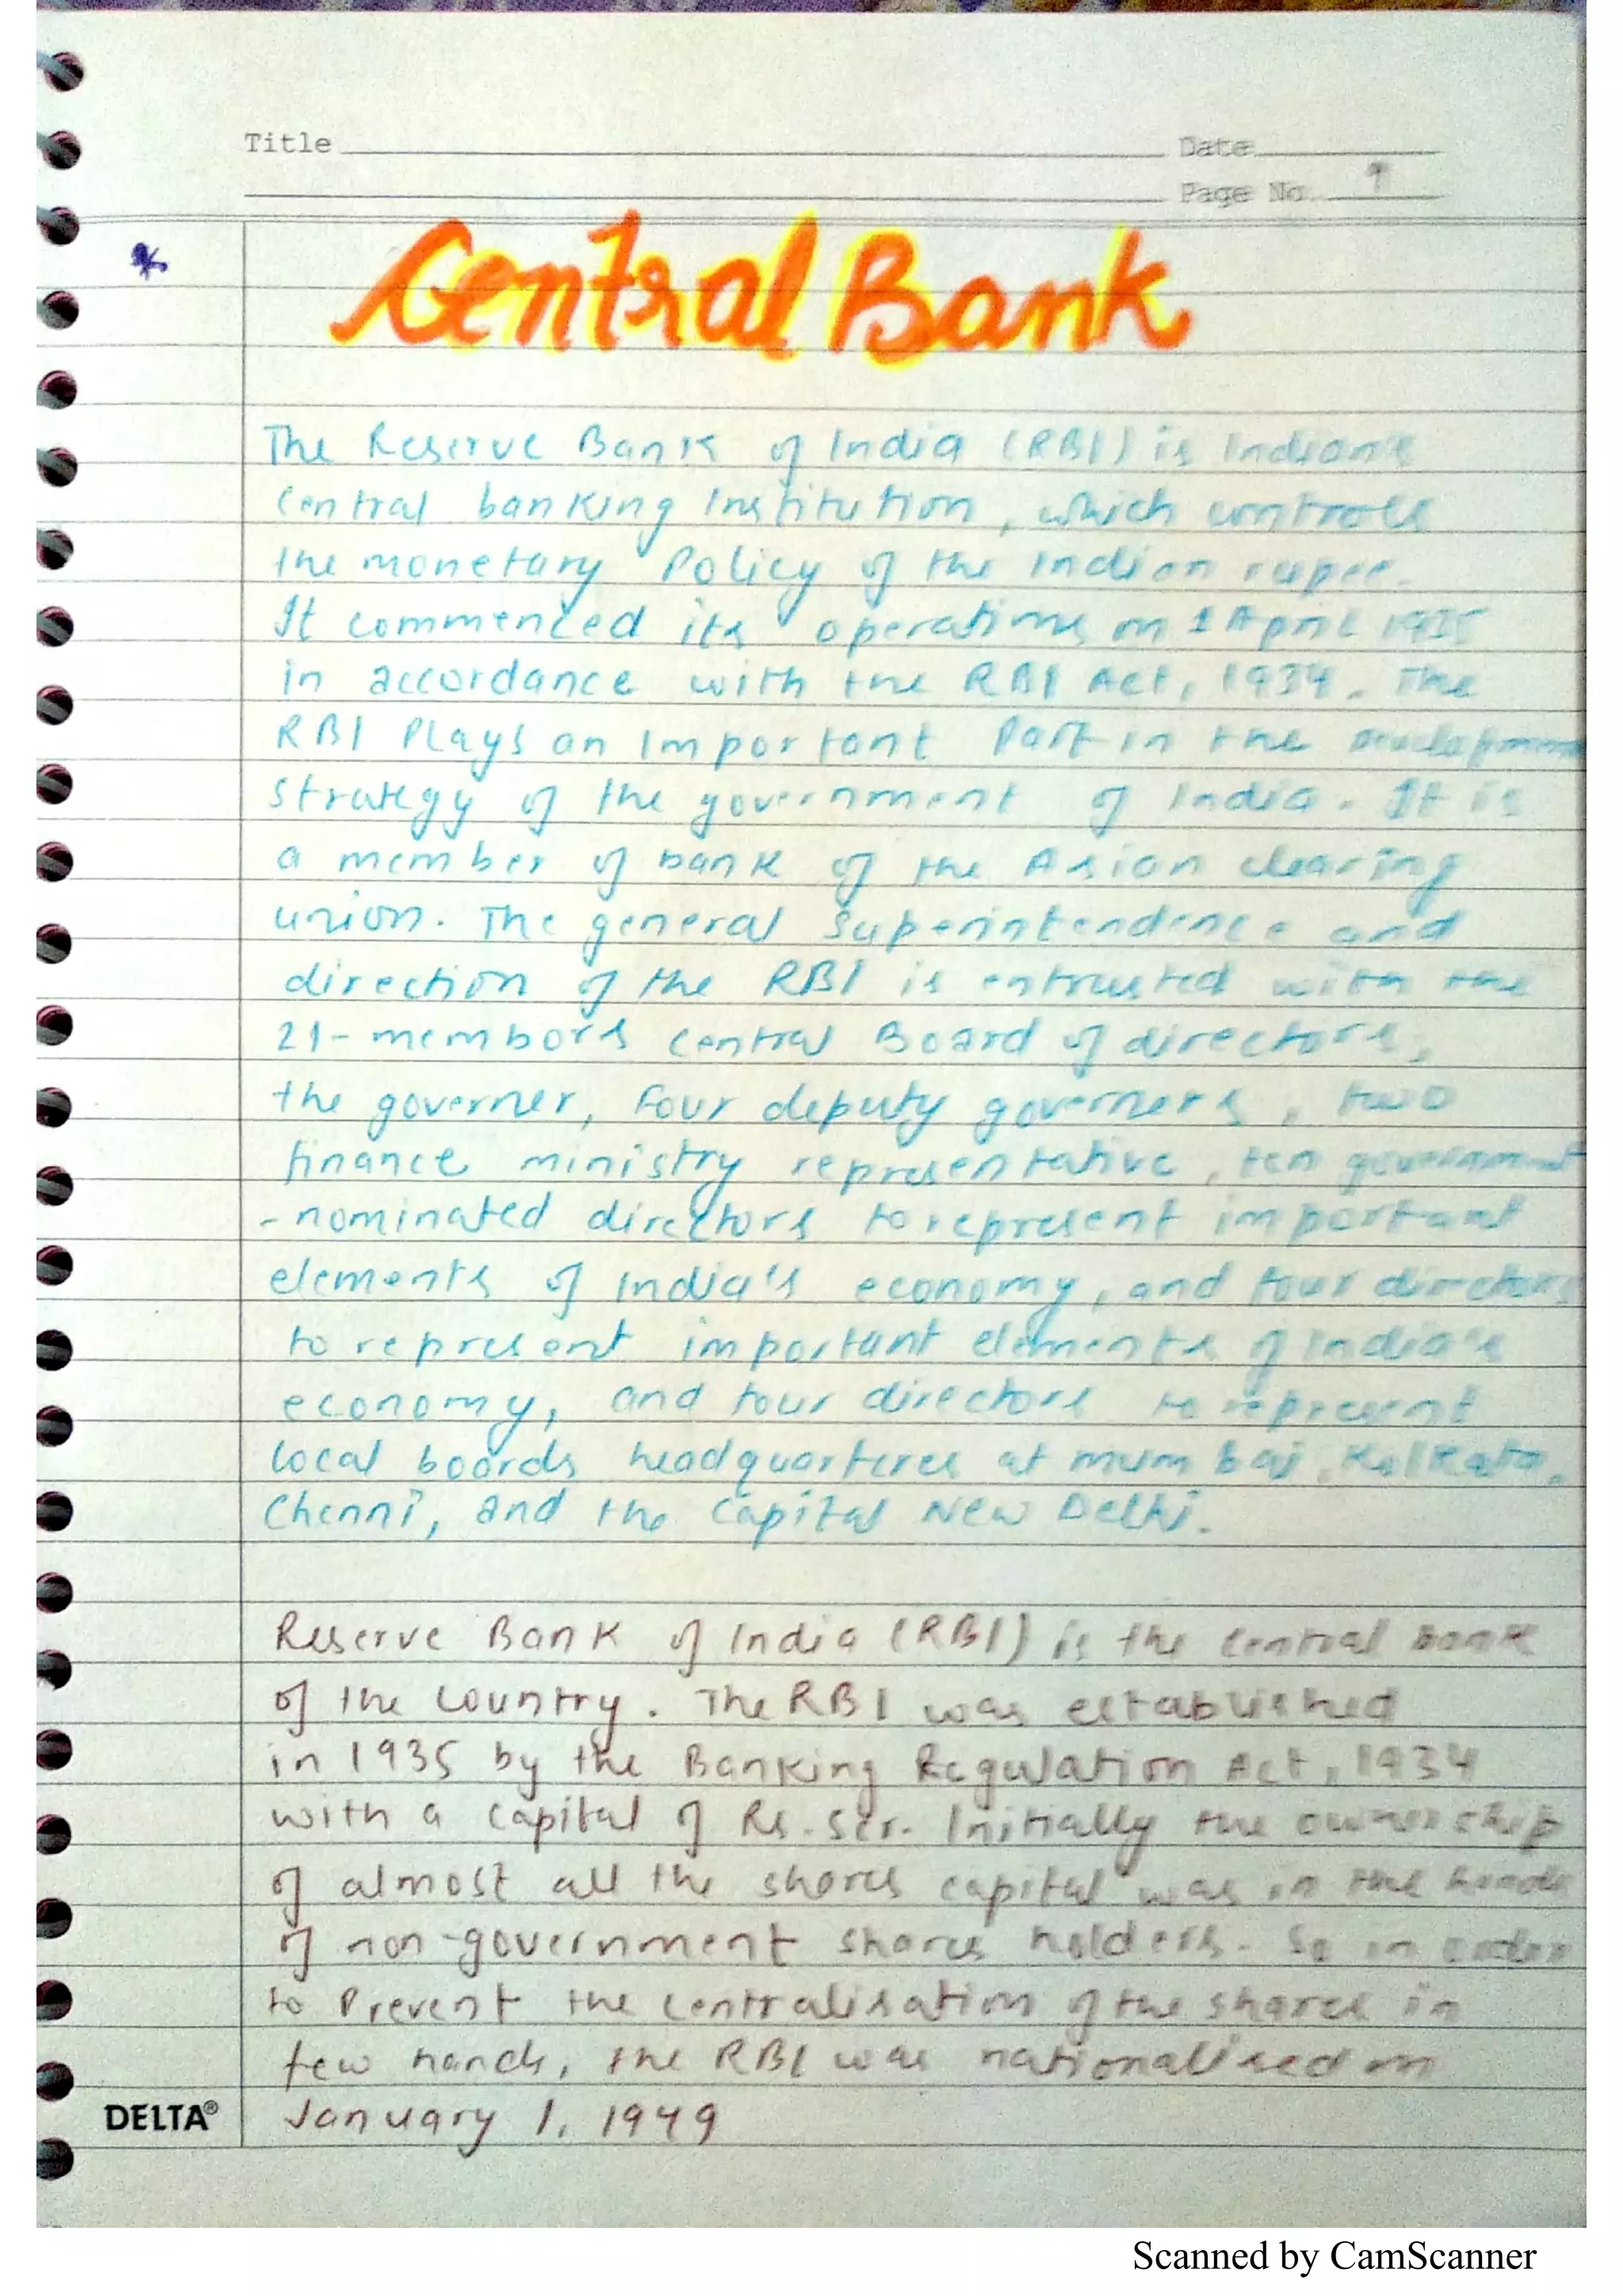 Title
Date
Page No
Central Bank
The Reserve Bank of India (RBI) is Indian's
Central banking Institution, which controls
the monetary Policy of the Indian rupee.
It commenced its operations on 1 April 1935
in accordance with the RBI Act, 1934. The
RBI Plays an Important Part in the
strategy of the government of India. It is
a member of bank of the Asian clearing
union. The general superintendence and
direction of the RBI is entrusted with the
21-members Central Board of directors,
the governer, four deputy governers, two
finance ministry representative, ten government
-nominated directors to represent important
elements of India's economy, and four directors
to represent important elements of India's
economy, and four directors to represent
local boards headquarteres at mumbai, Kolkata,
Chenni, and the Capital New Delhi.
Reserve Bank of India (RBI) is the Central Bank
of the country. The RBI was established
in 1935 by the Banking Regulation Act, 1934
with a capital of Rs. 5cr. Initially the ownership
of almost all the shares capital was in the hands
of non-government shares holders. So in order
to Prevent the centralisation of the shares in
few hands, the RBI was nationalised on
January 1, 1949
DELTA®
Scanned by CamScanner